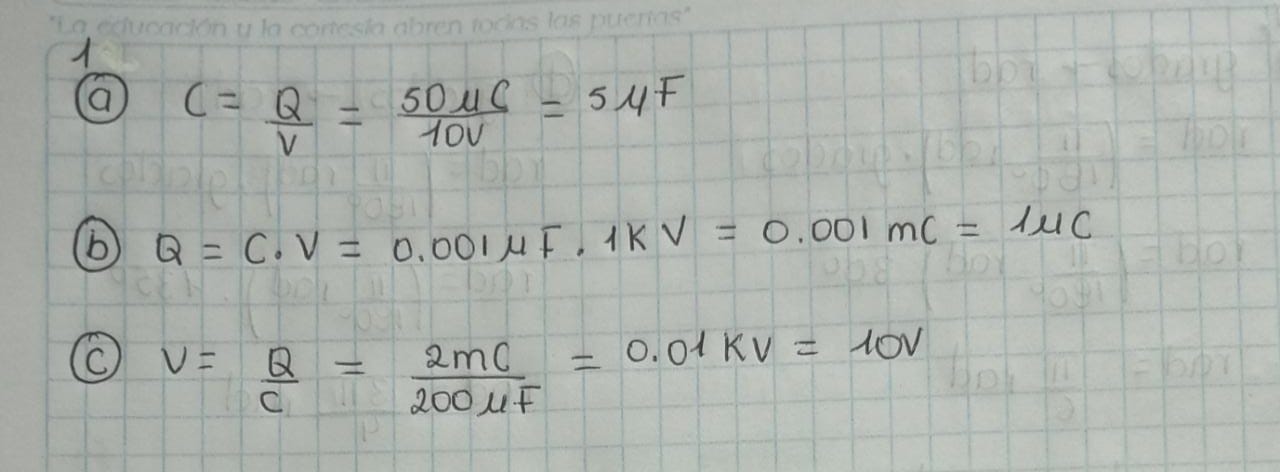 "La educación y la cortesía abren todas las puertas"
1
a C = Q/V = 50 μC/10V = 5 μF
b Q = C.V = 0.001 μF . 1KV = 0.001 mC = 1μC
c V = Q/C = 2mC/200 μF = 0.01 KV = 10V